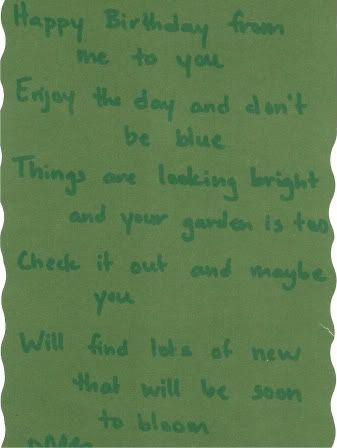 Happy Birthday from
me to you
Enjoy the day and don't
be blue
Things are looking bright
and your garden is too
Check it out and maybe
you
Will find lots of new
that will be soon
to bloom